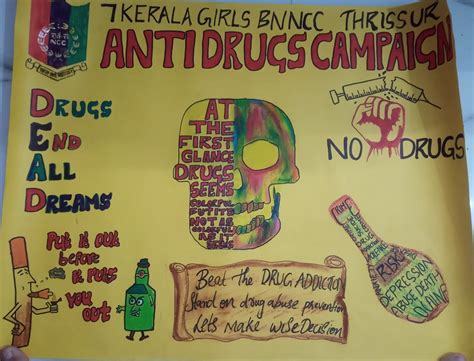 7 KERALA GIRLS BN NCC THRISSUR
ANTI DRUGS CAMPAIGN
NCC
DRUGS
END
ALL
DREAMS
AT
THE
FIRST
GLANCE
DRUGS
SEEMS
COLORFUL
BUT IT'S
NOT AS
COLORFUL
AS IT
SEEMS
NO DRUGS
Put it out
before
it puts
you out
Beat the DRUG ADDICTION
Stand on drug abuse prevention
Lets make wise Decision
RISK
DEPRESSION
ABUSE DEATH